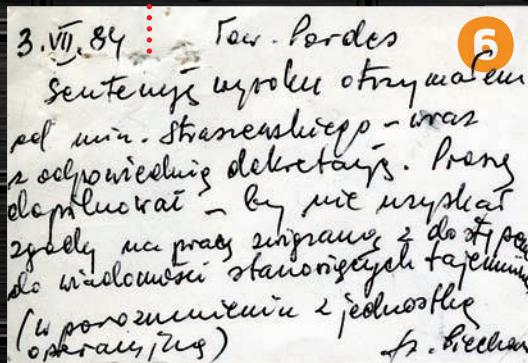 3.VII.84 Tow. Pardes
6
Sentencję wyroku otrzymałem
od min. Straszewskiego - wraz
z odpowiednią dekretacją. Proszę
dopilnować - by nie uzyskał
zgody na pracę związaną z dostępem
do wiadomości stanowiących tajemnicę
(w porozumieniu z jednostką
operacyjną)